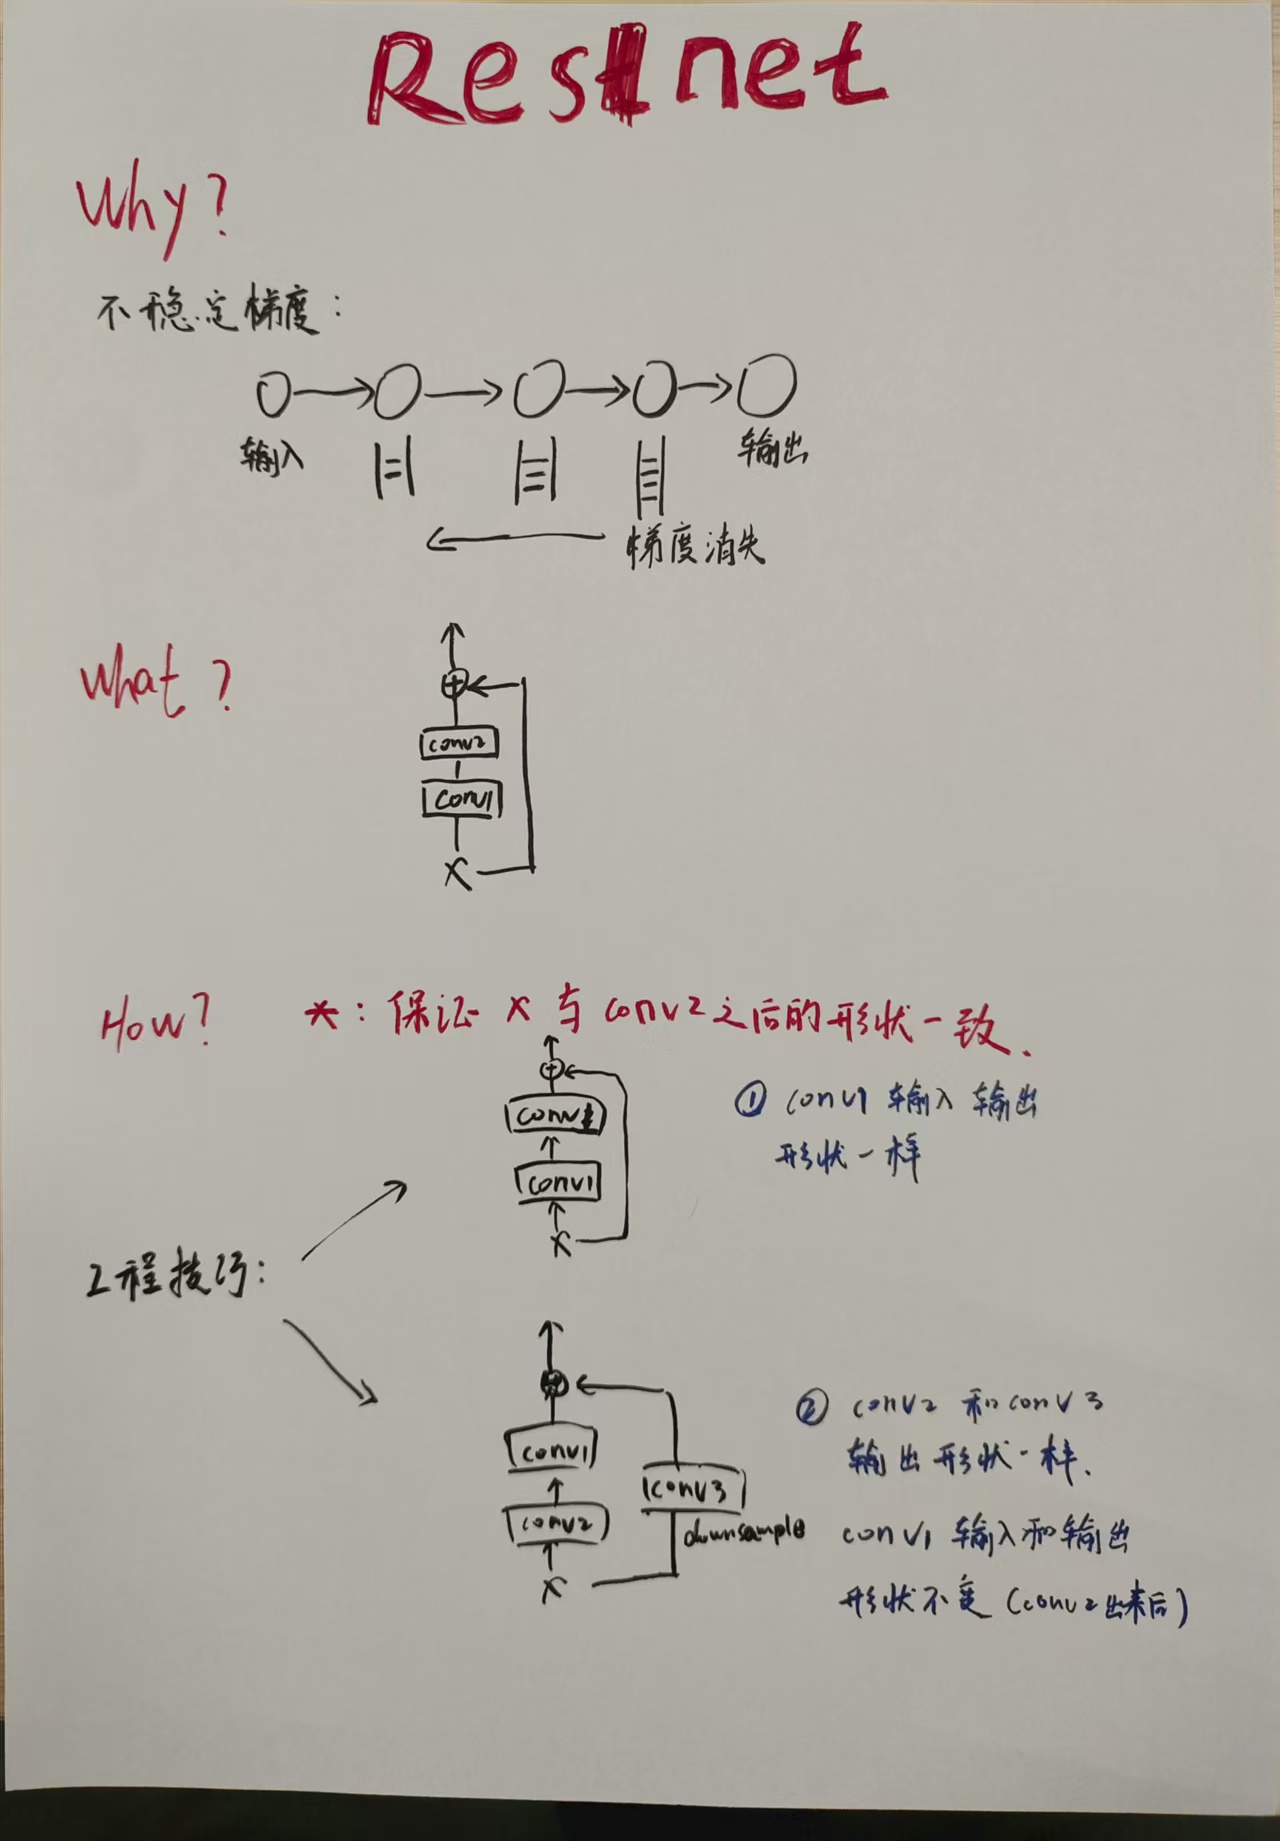 Resnet
Why?
不稳定梯度:
输入
输出
梯度消失
What?
conv2
conv1
x
How? *: 保证 x 与 conv2之后的形状一致.
conv1
conv1
x
① conv1 输入输出
形状一样
工程技巧:
conv1
conv2
x
conv3
downsample
② conv2 和 conv3
输出形状一样.
conv1 输入和输出
形状不变 (conv2出来后)